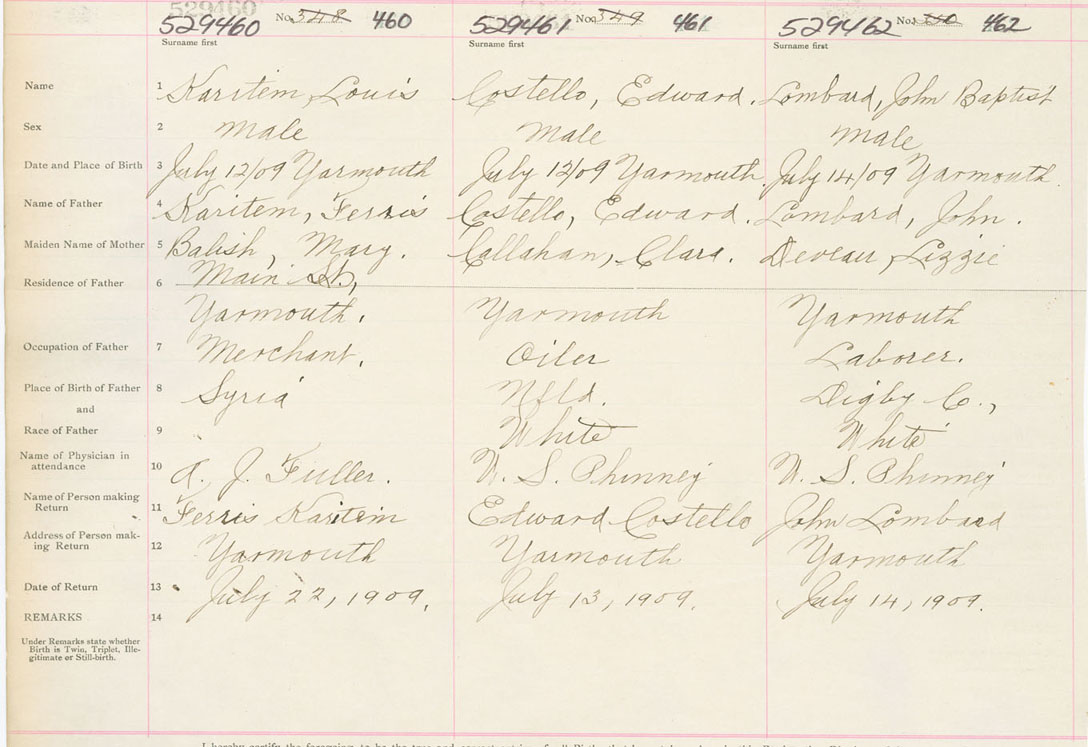 529460
529460 No. 348 460 529461 No. 349 461 529462 No. 350 462
Surname first Surname first Surname first
Name 1 Karitem, Louis Costello, Edward. Lombard, John Baptist
Sex 2 Male Male Male
Date and Place of Birth 3 July 12/09 Yarmouth July 12/09 Yarmouth. July 14/09 Yarmouth.
Name of Father 4 Karitem, Ferris Costello, Edward. Lombard, John.
Maiden Name of Mother 5 Balish, Mary. Callahan, Clara. Deveau, Lizzie
Residence of Father 6 Main St,
Yarmouth. Yarmouth Yarmouth
Occupation of Father 7 Merchant. Oiler Laborer.
Place of Birth of Father 8 Syria Nfld. Digby C.,
and
Race of Father 9 White White
Name of Physician in
attendance 10 A. J. Fuller. W. S. Phinney W. S. Phinney
Name of Person making
Return 11 Ferris Karitem Edward Costello John Lombard
Address of Person mak-
ing Return 12 Yarmouth Yarmouth Yarmouth
Date of Return 13 July 22, 1909. July 13, 1909. July 14, 1909.
REMARKS 14
Under Remarks state whether
Birth is Twin, Triplet, Ille-
gitimate or Still-birth.